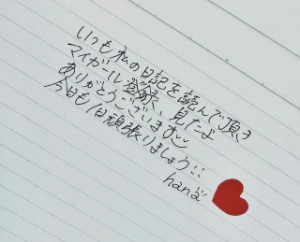 いつも私の日記を読んで頂き
マイガール登録、見たよ
ありがとうございます
今日も1日頑張りましょう!!
hana